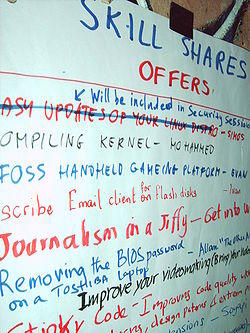 SKILL SHARES
OFFERS
Will be included in Security Session
ASY UPDATES OF YOUR LINUX DISTRO - SIMOS
OMPILING KERNEL - MOHAMMED
FOSS HANDHELD GAMEING PLATFORM - EVAN
scribe Email client for on Flash disks
Journalism in a Jiffy - Get into
Removing the BIOS password - Allan
on a TOSHIBA laptop
Improve your videomaking (Bring your video
Code - Improves code quality
design patterns & extrem